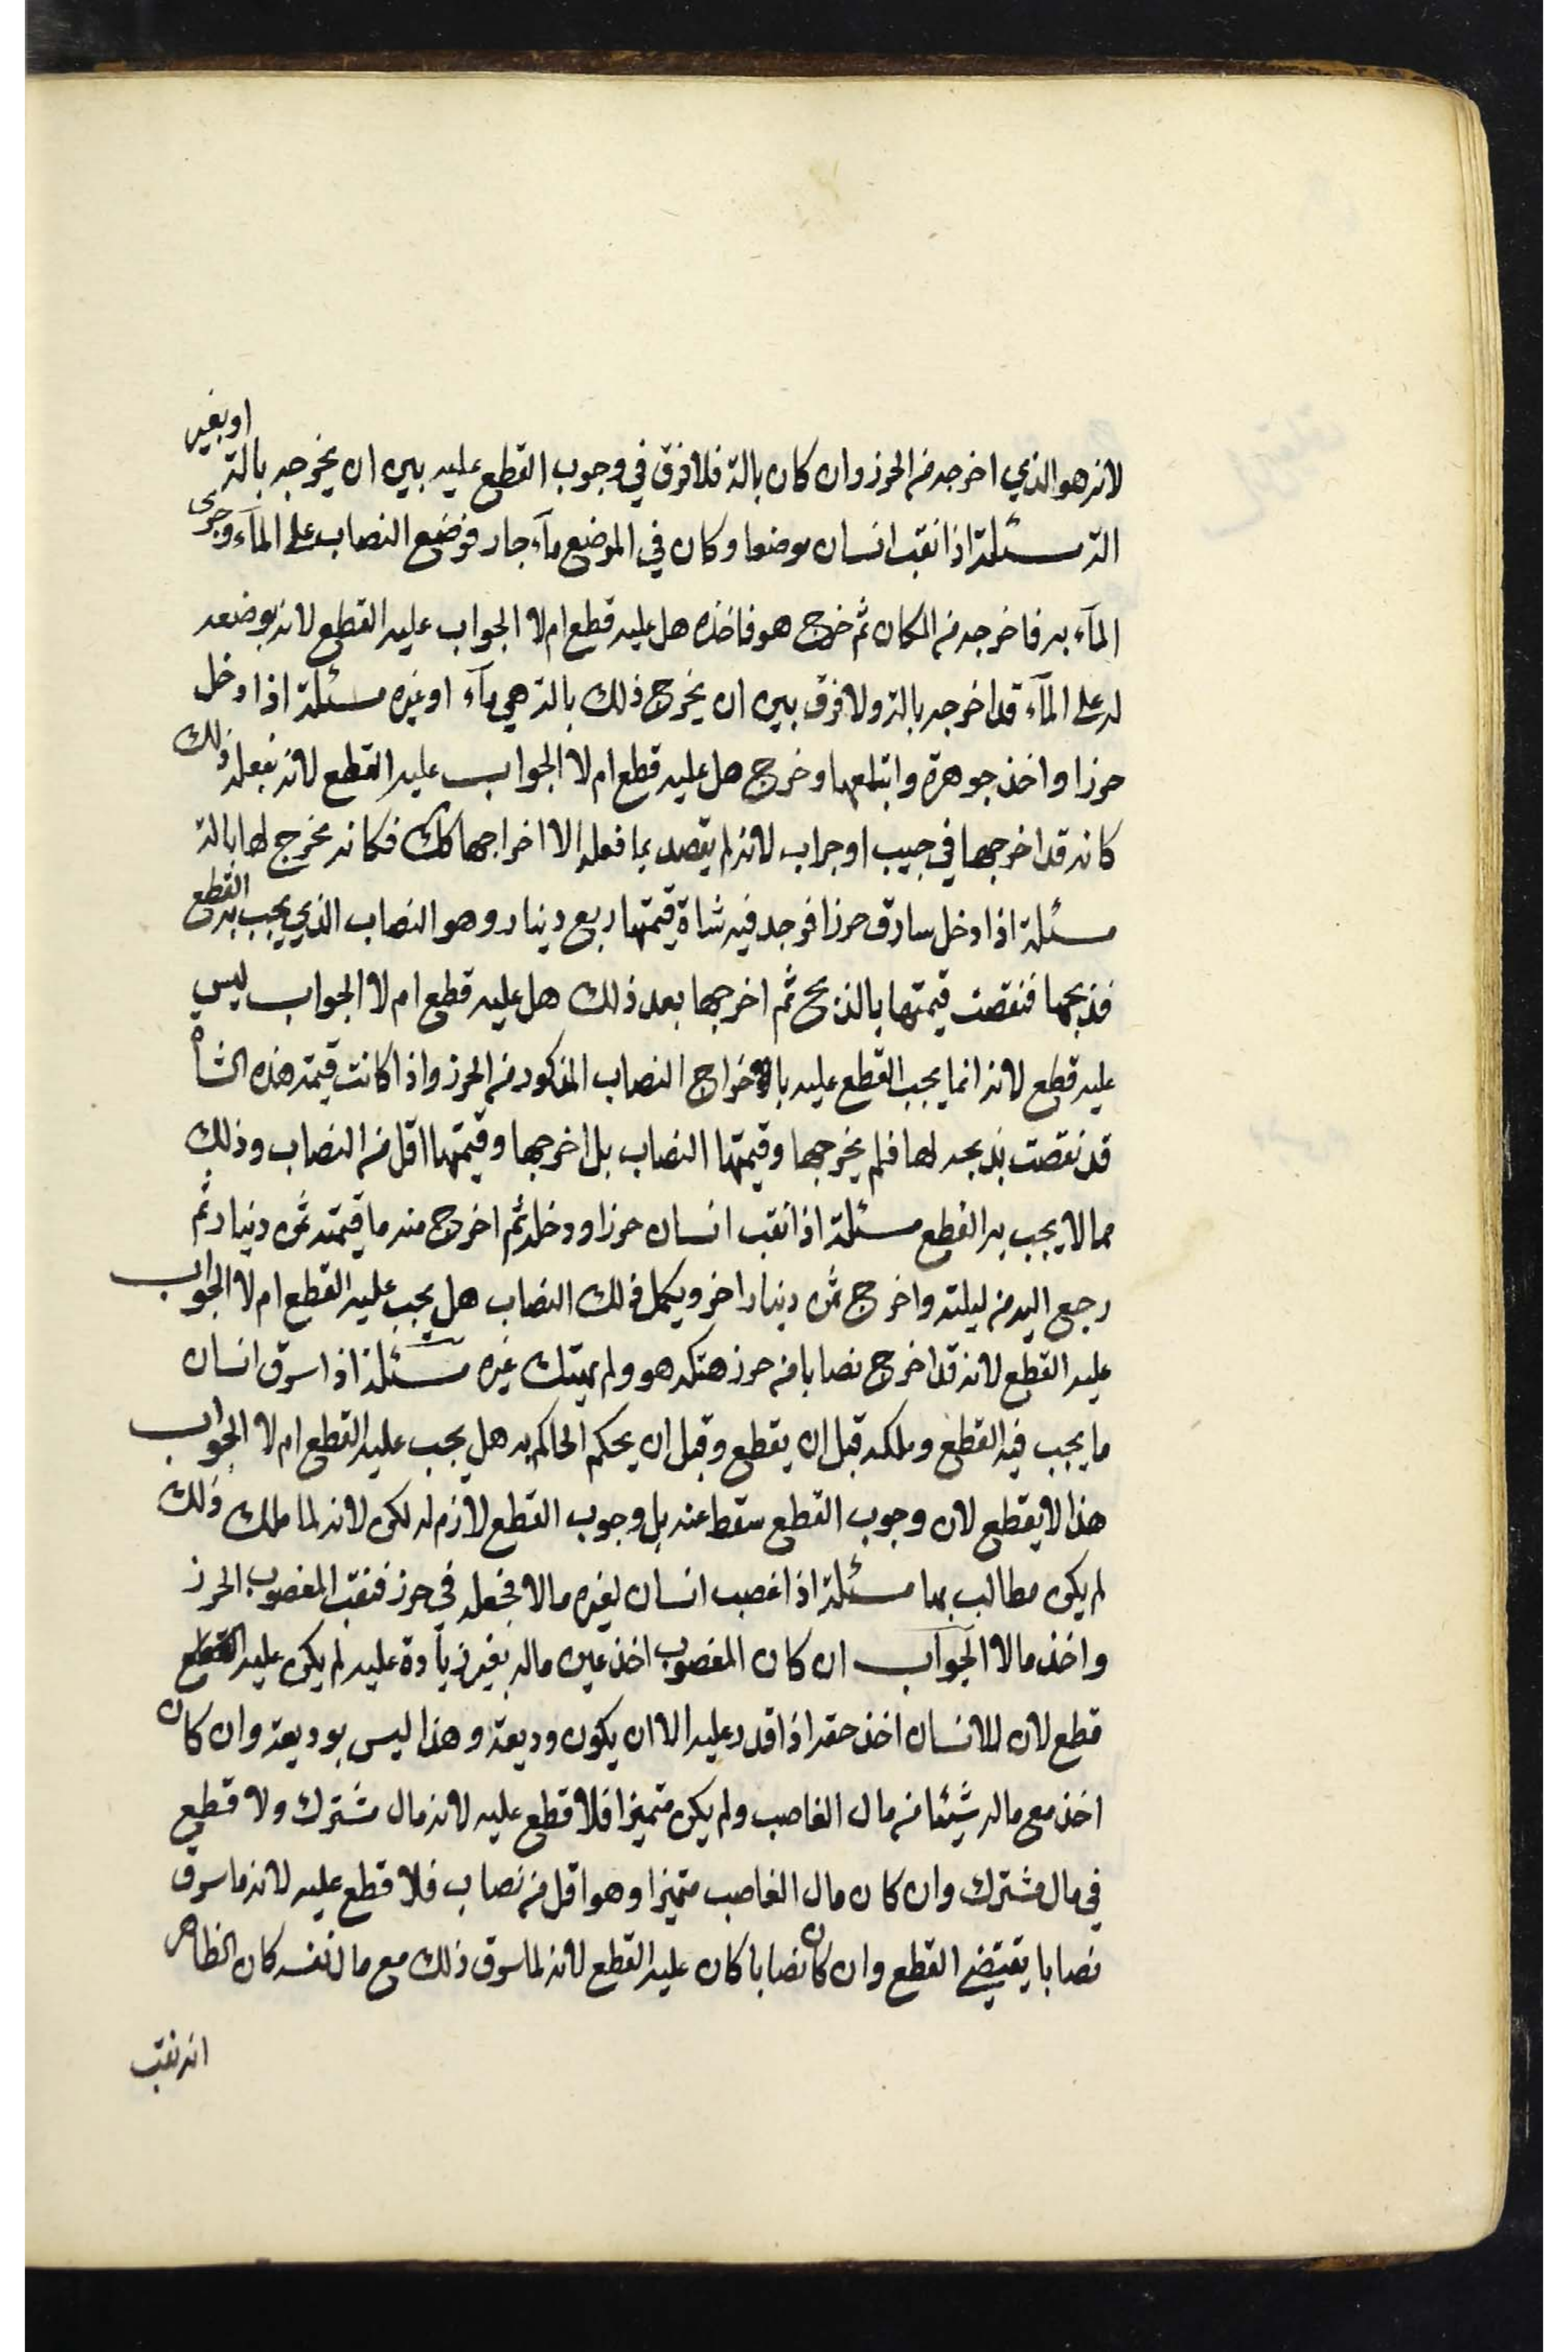 لانه هو الذي اخرجه من الحرز وان كان بالة فلا فرق في وجوب القطع عليه بين ان يخرجه بالة او بغير
الة مسئلة اذا نقب انسان موضعا وكان في الموضع مآء جار فوضع النصاب على المآء وجرى
المآء به فاخرجه من المكان ثم خرج هو فاخذه هل عليه قطع ام لا الجواب عليه القطع لانه بوضعه
له على المآء قد اخرجه بالة ولا فرق بين ان يخرج ذلك بالة هي مآء او غيره مسئلة اذا دخل
حرزا واخذ جوهرة وابتلعها وخرج هل عليه قطع ام لا الجواب عليه القطع لانه بفعله ذلك
كانه قد اخرجها في جيب او جراب لانه لم يقصد بما فعله الا اخراجها كك فكانه مخرج لها بالة
مسئلة اذا دخل سارق حرزا فوجد فيه شاة قيمتها ربع دينار وهو النصاب الذي يجب به القطع
فذبحها فنقصت قيمتها بالذبح ثم اخرجها بعد ذلك هل عليه قطع ام لا الجواب ليس
عليه قطع لانه انما يجب القطع عليه باخراج النصاب المذكور من الحرز واذا كانت قيمة هذه الشاة
قد نقصت بذبحه لها فلم يخرجها وقيمتها النصاب بل اخرجها وقيمتها اقل من النصاب وذلك
مما لا يجب به القطع مسئلة اذا نقب انسان حرزا ودخله ثم اخرج منه ما قيمته ثمن دينار ثم
رجع اليه من ليلته واخرج ثمن دينار اخر ويكمل ذلك النصاب هل يجب عليه القطع ام لا الجواب
عليه القطع لانه قد اخرج نصابا من حرز هتكه هو ولم يهتك غيره مسئلة اذا سرق انسان
ما يجب فيه القطع وملكه قبل ان يقطع وقبل ان يحكم الحاكم به هل يجب عليه القطع ام لا الجواب
هذا لا يقطع لان وجوب القطع سقط عنه بل وجوب القطع لازم له لكن لانه لما ملك ذلك
لم يكن مطالب بها مسئلة اذا غصب انسان لغيره مالا فجعله في حرز فنقب المغصوب الحرز
واخذ مالا الجواب ان كان المغصوب اخذ عين ماله بغير زيآدة عليه لم يكن عليه القطع
قطع لان للانسان اخذ حقه اذا قدر عليه الا ان يكون وديعة وهذا ليس بوديعة وان كان
اخذ مع ماله شيئا من مال الغاصب ولم يكن متميزا فلا قطع عليه لانه مال مشترك ولا قطع
في مال مشترك وان كان مال الغاصب متميزا وهو اقل من نصاب فلا قطع عليه لانه ما سرق
نصابا يقتضي القطع وان كان نصابا كان عليه القطع لانه لما سرق ذلك مع مال نفسه كان الظاهر
انه نقب